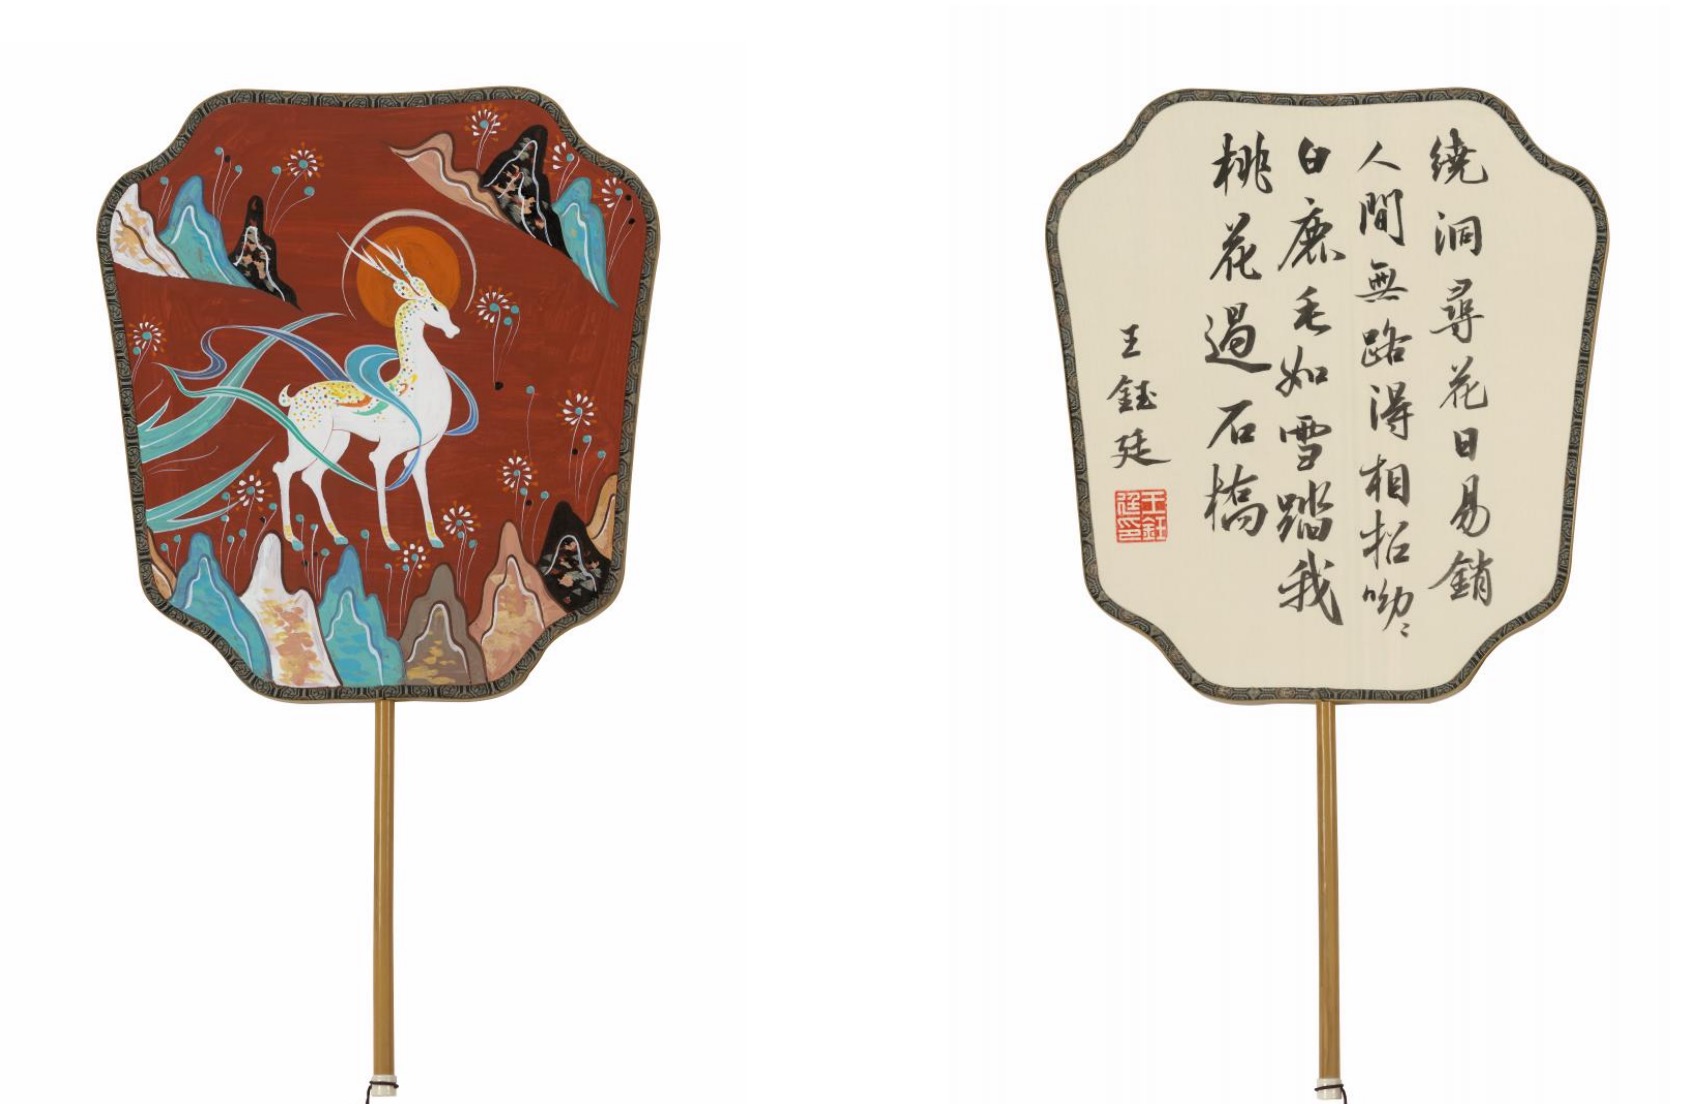 繞洞尋花日易銷
人間無路得相招呦〻
白鹿毛如雪踏我
桃花過石橋
王鈺廷
王鈺廷印